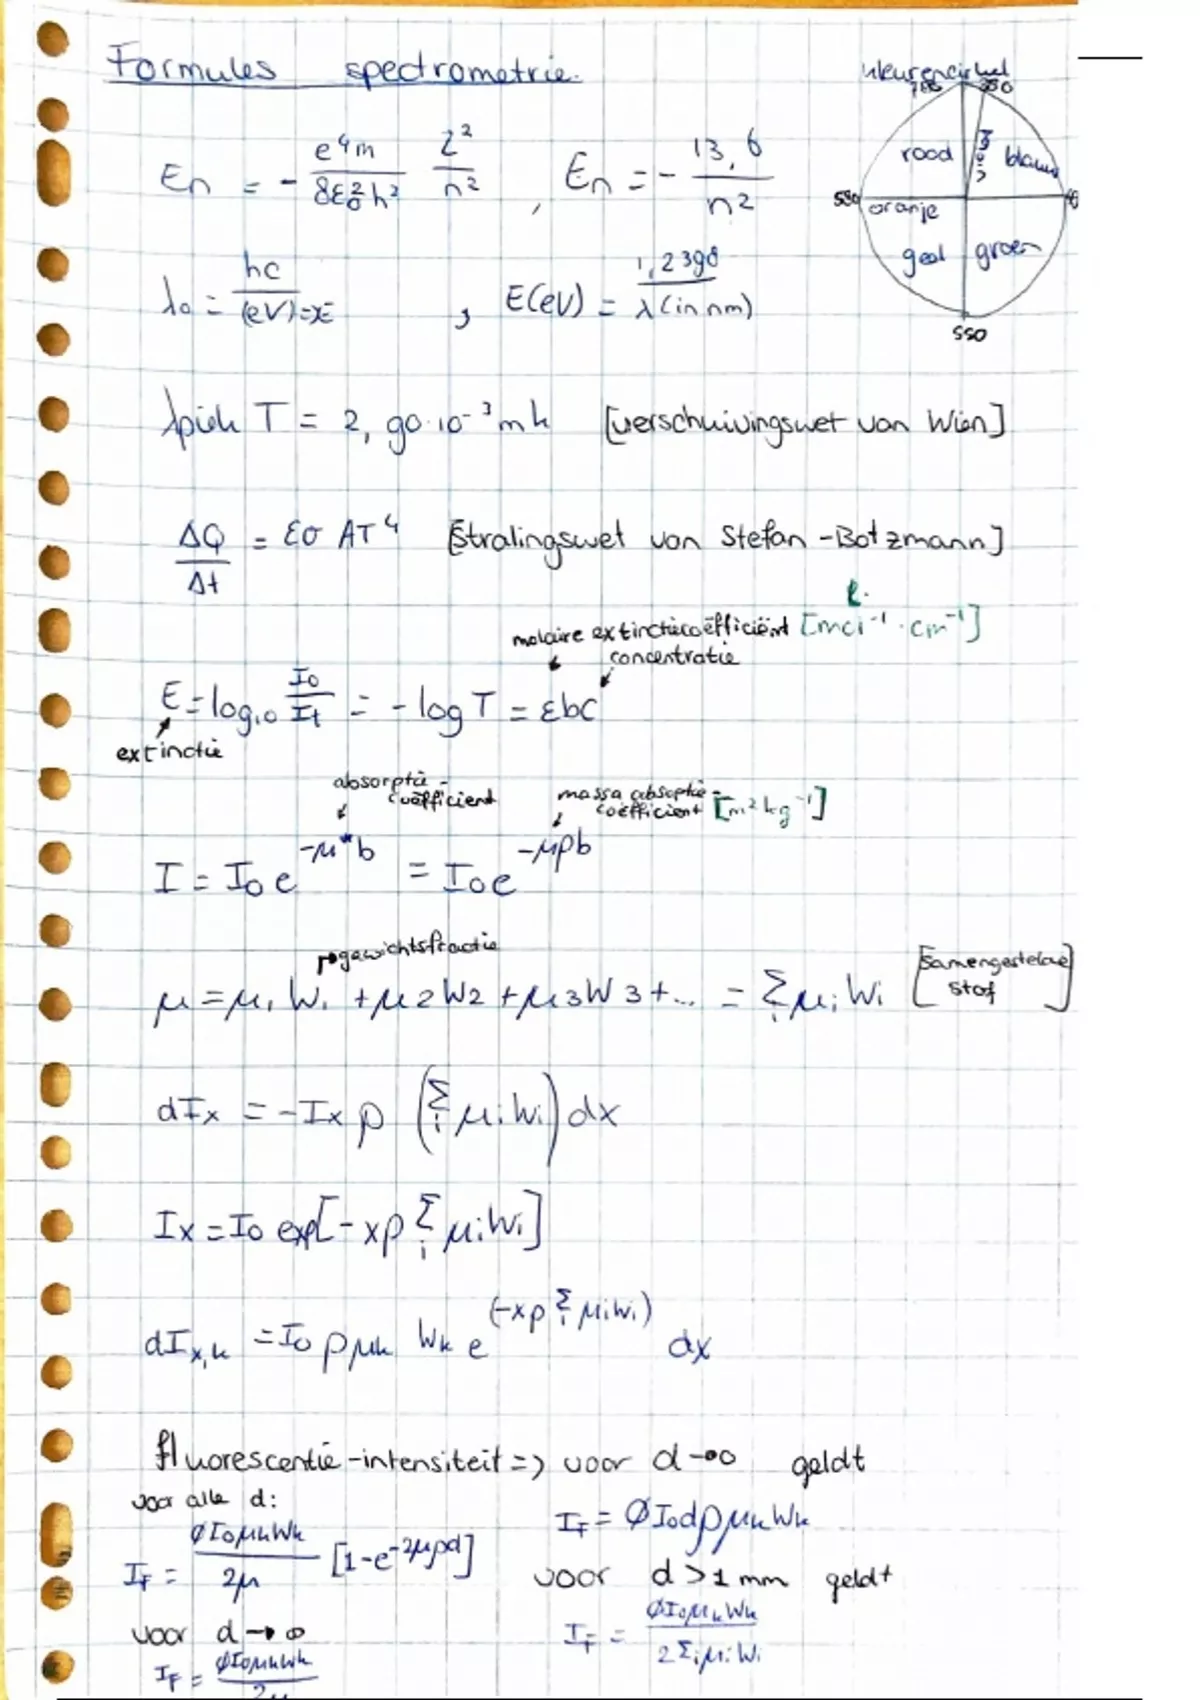 Formules spectrometrie.
kleurencirkel
780 380
rood
blauw
580
oranje
geel
groen
550
En = - e⁴m / 8ε₀²h² Z² / n² , En = - 13,6 / n²
λ₀ = hc / (eV)=E , E(eV) = 1,2398 / λ(in nm)
λpiek T = 2,90·10⁻³ mk [verschuivingswet van Wien]
ΔQ / Δt = εσ AT⁴ [Stralingswet van Stefan-Botzmann]
molaire extinctiecoëfficiënt [l. mol⁻¹ · cm⁻¹]
concentratie
E = log₁₀ I₀ / It = - log T = εbc
extinctie
absorptie-coëfficient
massa absoptie-coëfficient [m² kg⁻¹]
I = I₀ e^-μ*b = I₀ e^-μρb
gewichtsfractie
μ = μ₁W₁ + μ2W2 + μ3W3 + ... = Σi μi Wi [Samengestelde stof]
dIx = -Ix ρ (Σi μi Wi) dx
Ix = I₀ exp[-xρ Σi μi Wi]
dIx,k = I₀ ρ μk Wk e^(-xρ Σi μi Wi) dx
fluorescentie-intensiteit => voor d→0 geldt
voor alle d:
IF = ØI₀dρμkWk
IF = ØI₀μkWk / 2μ [1-e^-2μρd]
voor d>1 mm geldt
voor d→∞
IF = ØI₀μkWk / 2Σi μi Wi
IF = ØI₀μkWk / 2μ